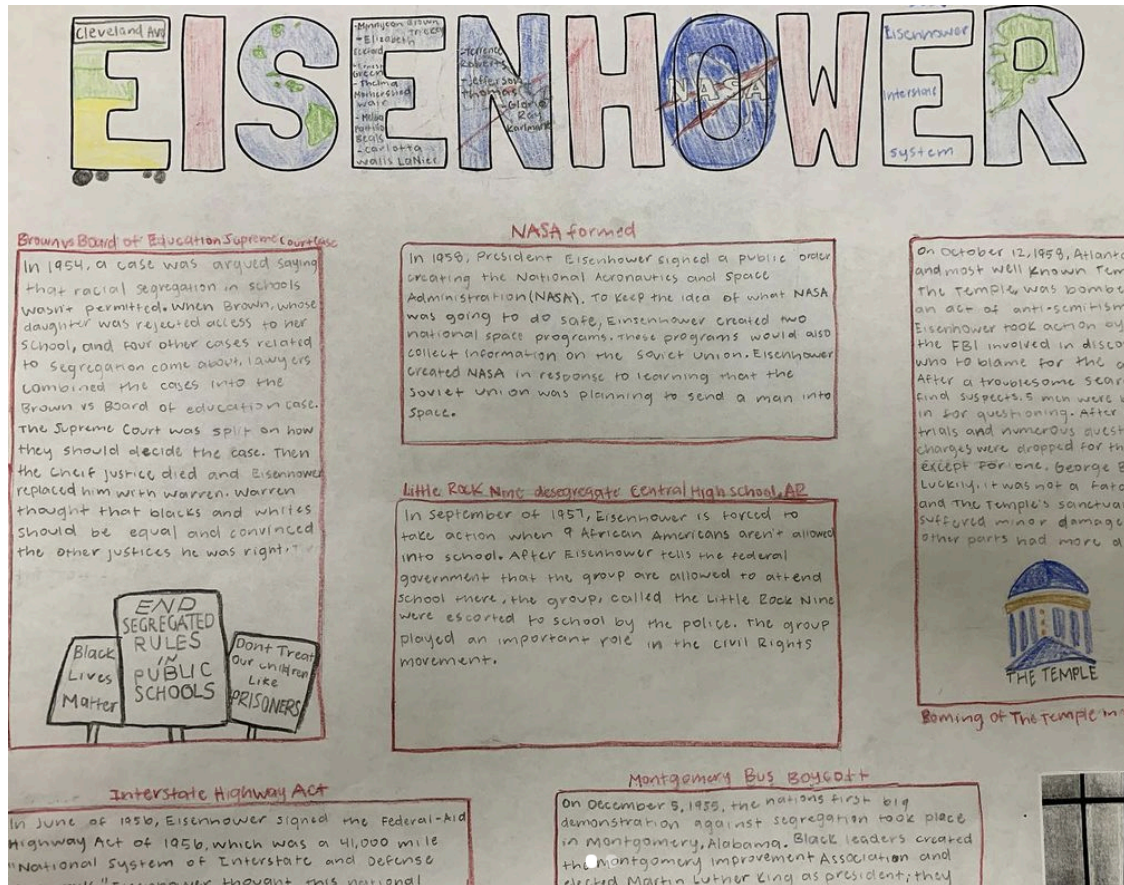 EISENHOWER
Cleveland Ave
-Minnyjean Brown
Trickey
-Elizabeth
Eckford
-Ernest
Green
-Thelma
Mothershed
Wair
-Melba
Pattillo
Beals
-Carlotta
Walls LaNier
-Terrence
Roberts
-Jefferson
Thomas
-Gloria
Ray
Karlmark
NASA
Eisenhower
Interstate
System
Brown vs Board of Education Supreme Court Case
In 1954, a case was argued saying
that racial segregation in schools
wasn't permitted. When Brown, whose
daughter was rejected access to her
school, and four other cases related
to segregation came about, lawyers
combined the cases into the
Brown vs Board of education case.
The Supreme Court was split on how
they should decide the case. Then
the cheif justice died and Eisenhower
replaced him with Warren. Warren
thought that blacks and whites
should be equal and convinced
the other justices he was right.
Black
Lives
Matter
END
SEGREGATED
RULES
IN
PUBLIC
SCHOOLS
Dont Treat
Our children
Like
PRISONERS
NASA formed
In 1958, President Eisenhower signed a public order
creating the National Aeronautics and Space
Administration (NASA). To keep the idea of what NASA
was going to do safe, Einsenhower created two
national space programs. These programs would also
collect information on the Soviet Union. Eisenhower
created NASA in response to learning that the
Soviet Union was planning to send a man into
space.
Little Rock Nine desegregate Central High School, AR
In September of 1957, Eisenhower is forced to
take action when 9 African Americans aren't allowed
into school. After Eisenhower tells the federal
government that the group are allowed to attend
school there, the group, called the Little Rock Nine
were escorted to school by the police. The group
played an important role in the Civil Rights
movement.
On October 12, 1958, Atlanta
and most well known Tem
The Temple, was bombe
an act of anti-semitism
Eisenhower took action by
the FBI involved in disco
who to blame for the a
After a troublesome sear
find suspects, 5 men were
in for questioning. After
trials and numerous quest
charges were dropped for th
except for one, George B
Luckily, it was not a fata
and The Temple's sanctua
suffered minor damage
other parts had more d
THE TEMPLE
Boming of The Temple in
Interstate Highway Act
In June of 1956, Eisenhower signed the Federal-Aid
Highway Act of 1956, which was a 41,000 mile
"National System of Interstate and Defense
thought this national
Montgomery Bus Boycott
On December 5, 1955, the nations first big
demonstration against segregation took place
in Montgomery, Alabama. Black leaders created
the Montgomery Improvement Association and
elected Martin Luther King as president; they